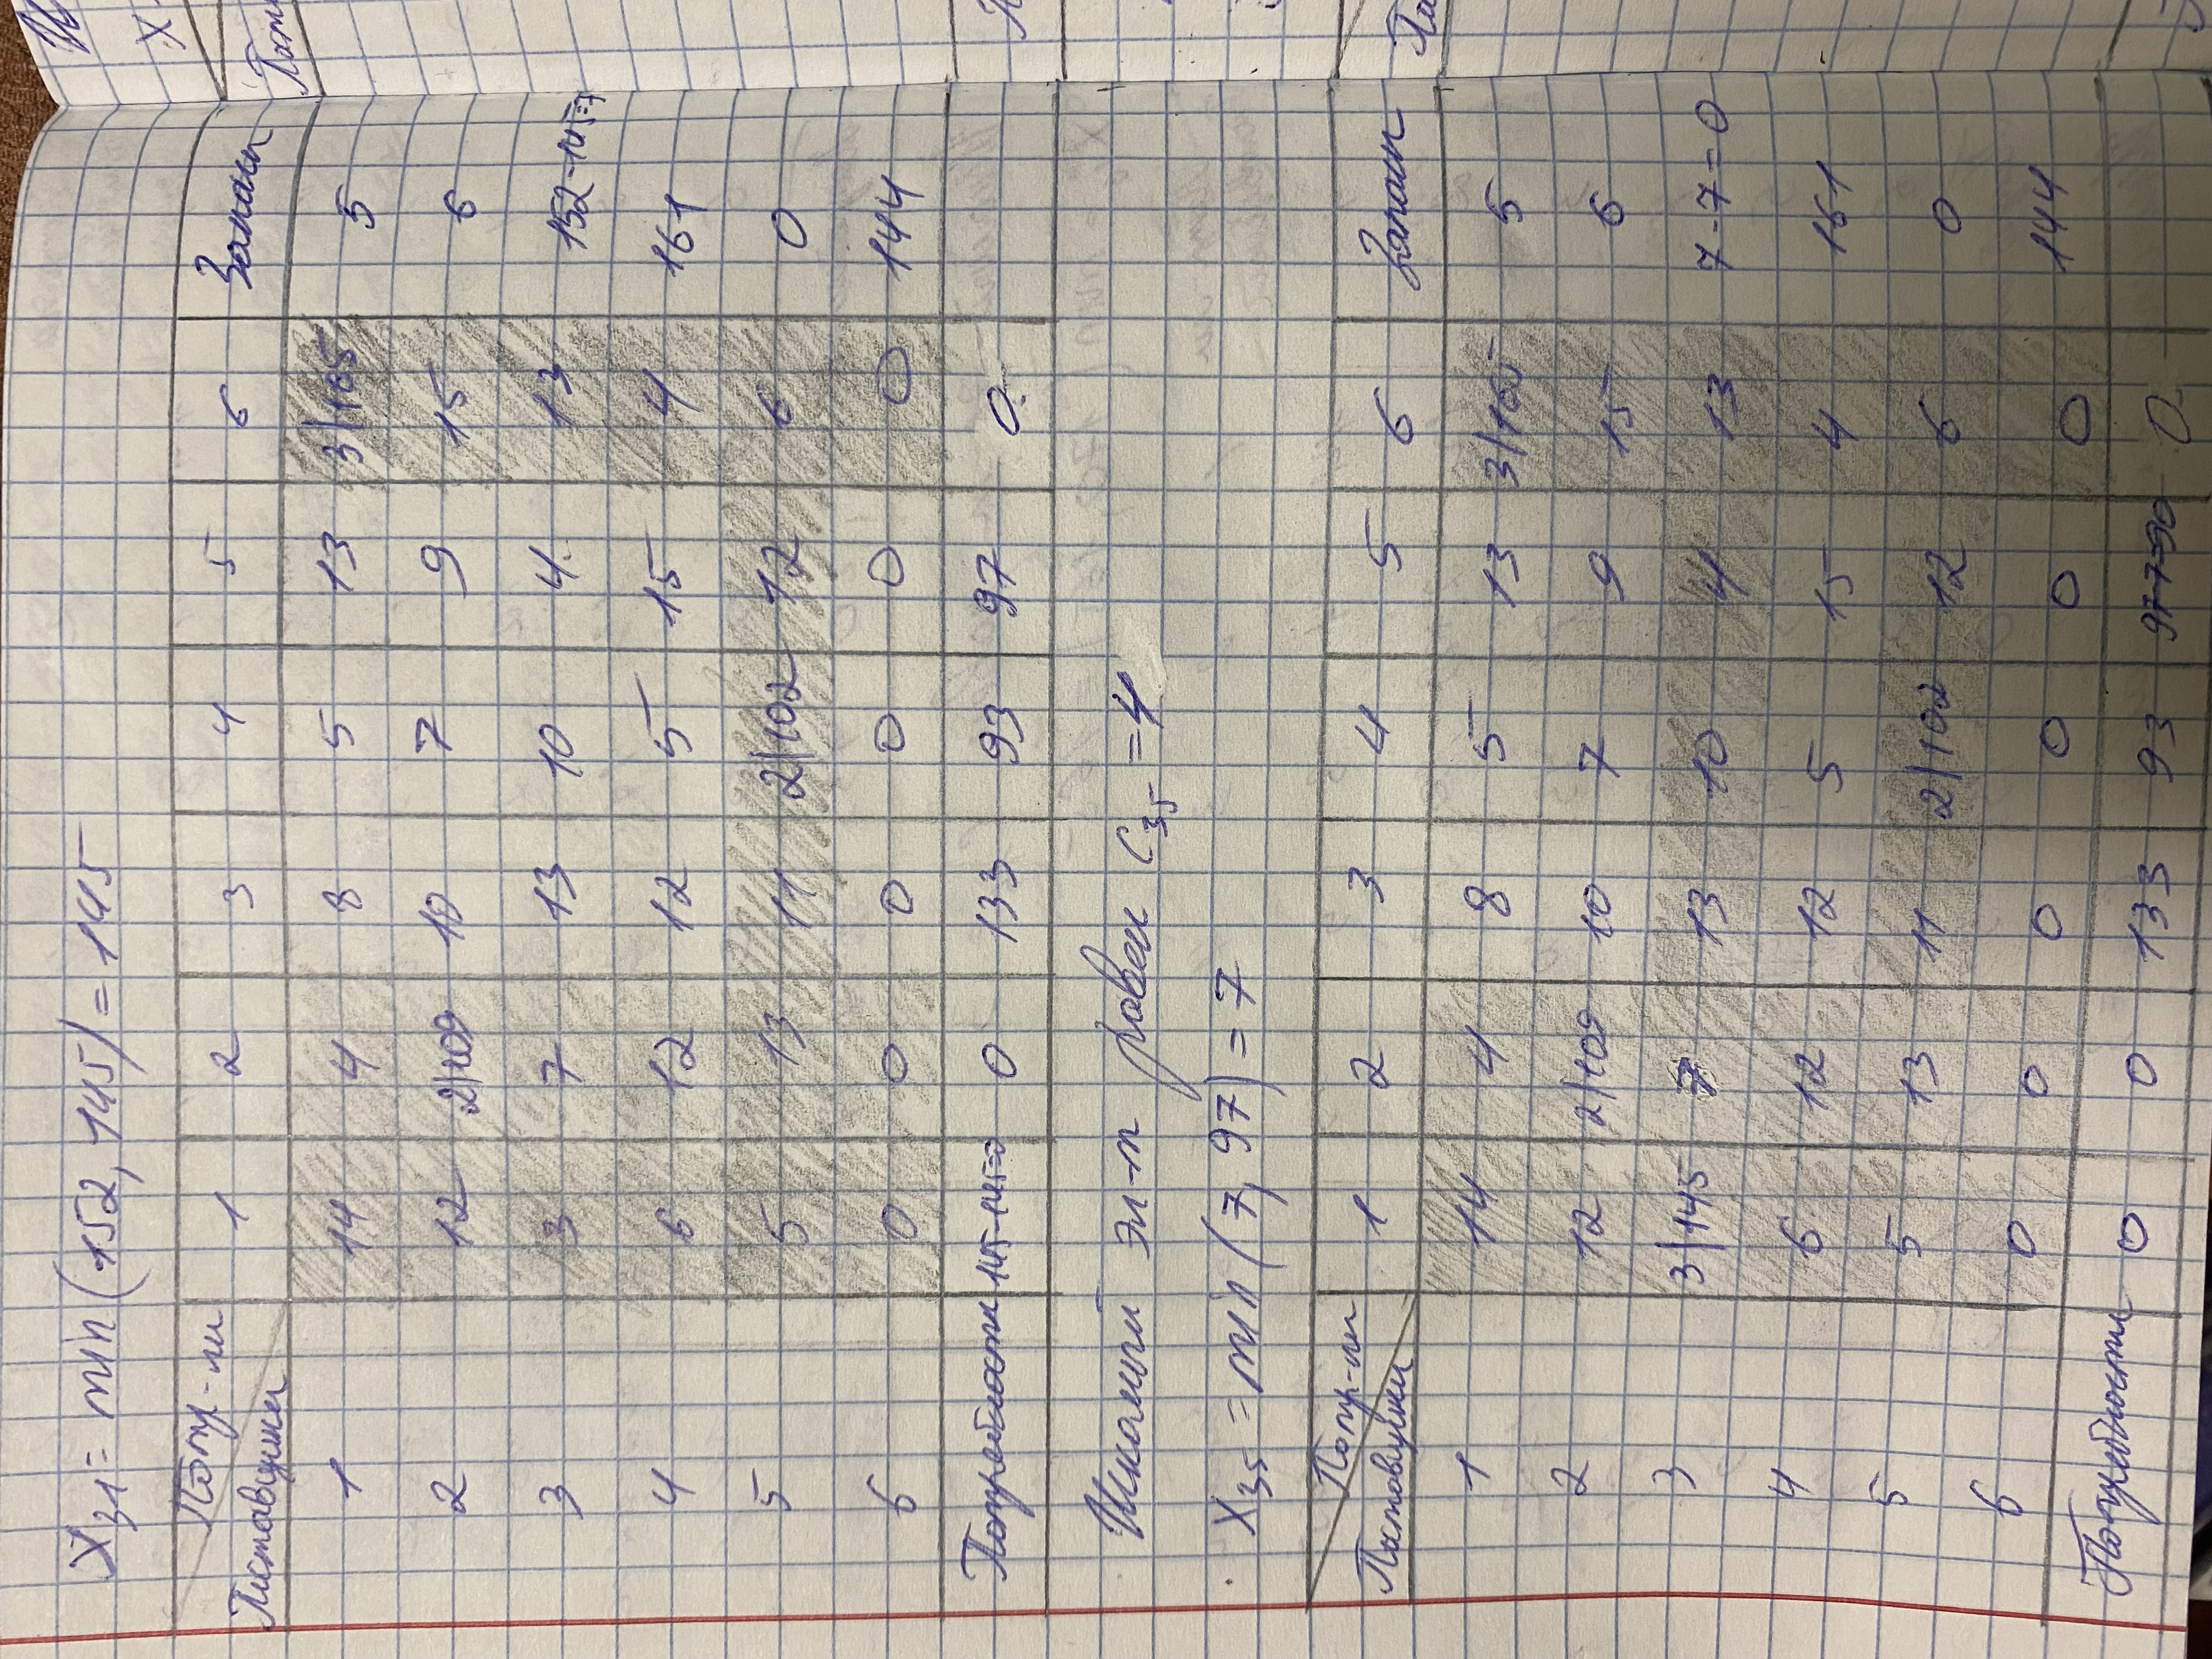 X₃₁ = min (152, 145) = 145
Потр-ли
Поставщики 1 2 3 4 5 6 Запасы
1 14 4 8 5 13 3|165 5
2 12 2|109 10 7 9 15 6
3 3 7 13 10 4 13 152-145=7
4 6 12 12 5 15 4 161
5 5 13 11 2|102 12 6 0
6 0 0 0 0 0 0 144
Потребности 145-145=0 0 133 93 97 0
Искомый эл-т равен C₃₅ = 4
X₃₅ = min (7, 97) = 7
Потр-ли
Поставщики 1 2 3 4 5 6 Запасы
1 14 4 8 5 13 3|165 5
2 12 2|109 10 7 9 15 6
3 3|145 7 13 10 4 13 7-7=0
4 6 12 12 5 15 4 161
5 5 13 11 2|102 12 6 0
6 0 0 0 0 0 0 144
Потребности 0 0 133 93 97-7=90 0